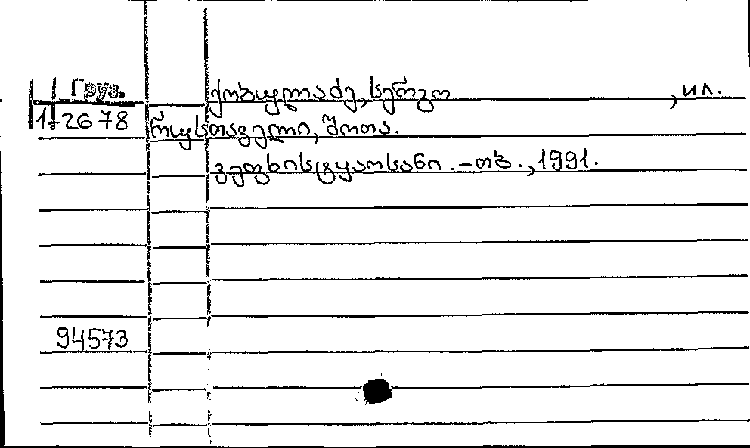 Груз. ქობულაძე, სერგო , ил.
1-2678 რუსთაველი, შოთა.
ვეფხისტყაოსანი. - თბ., 1991.
94573